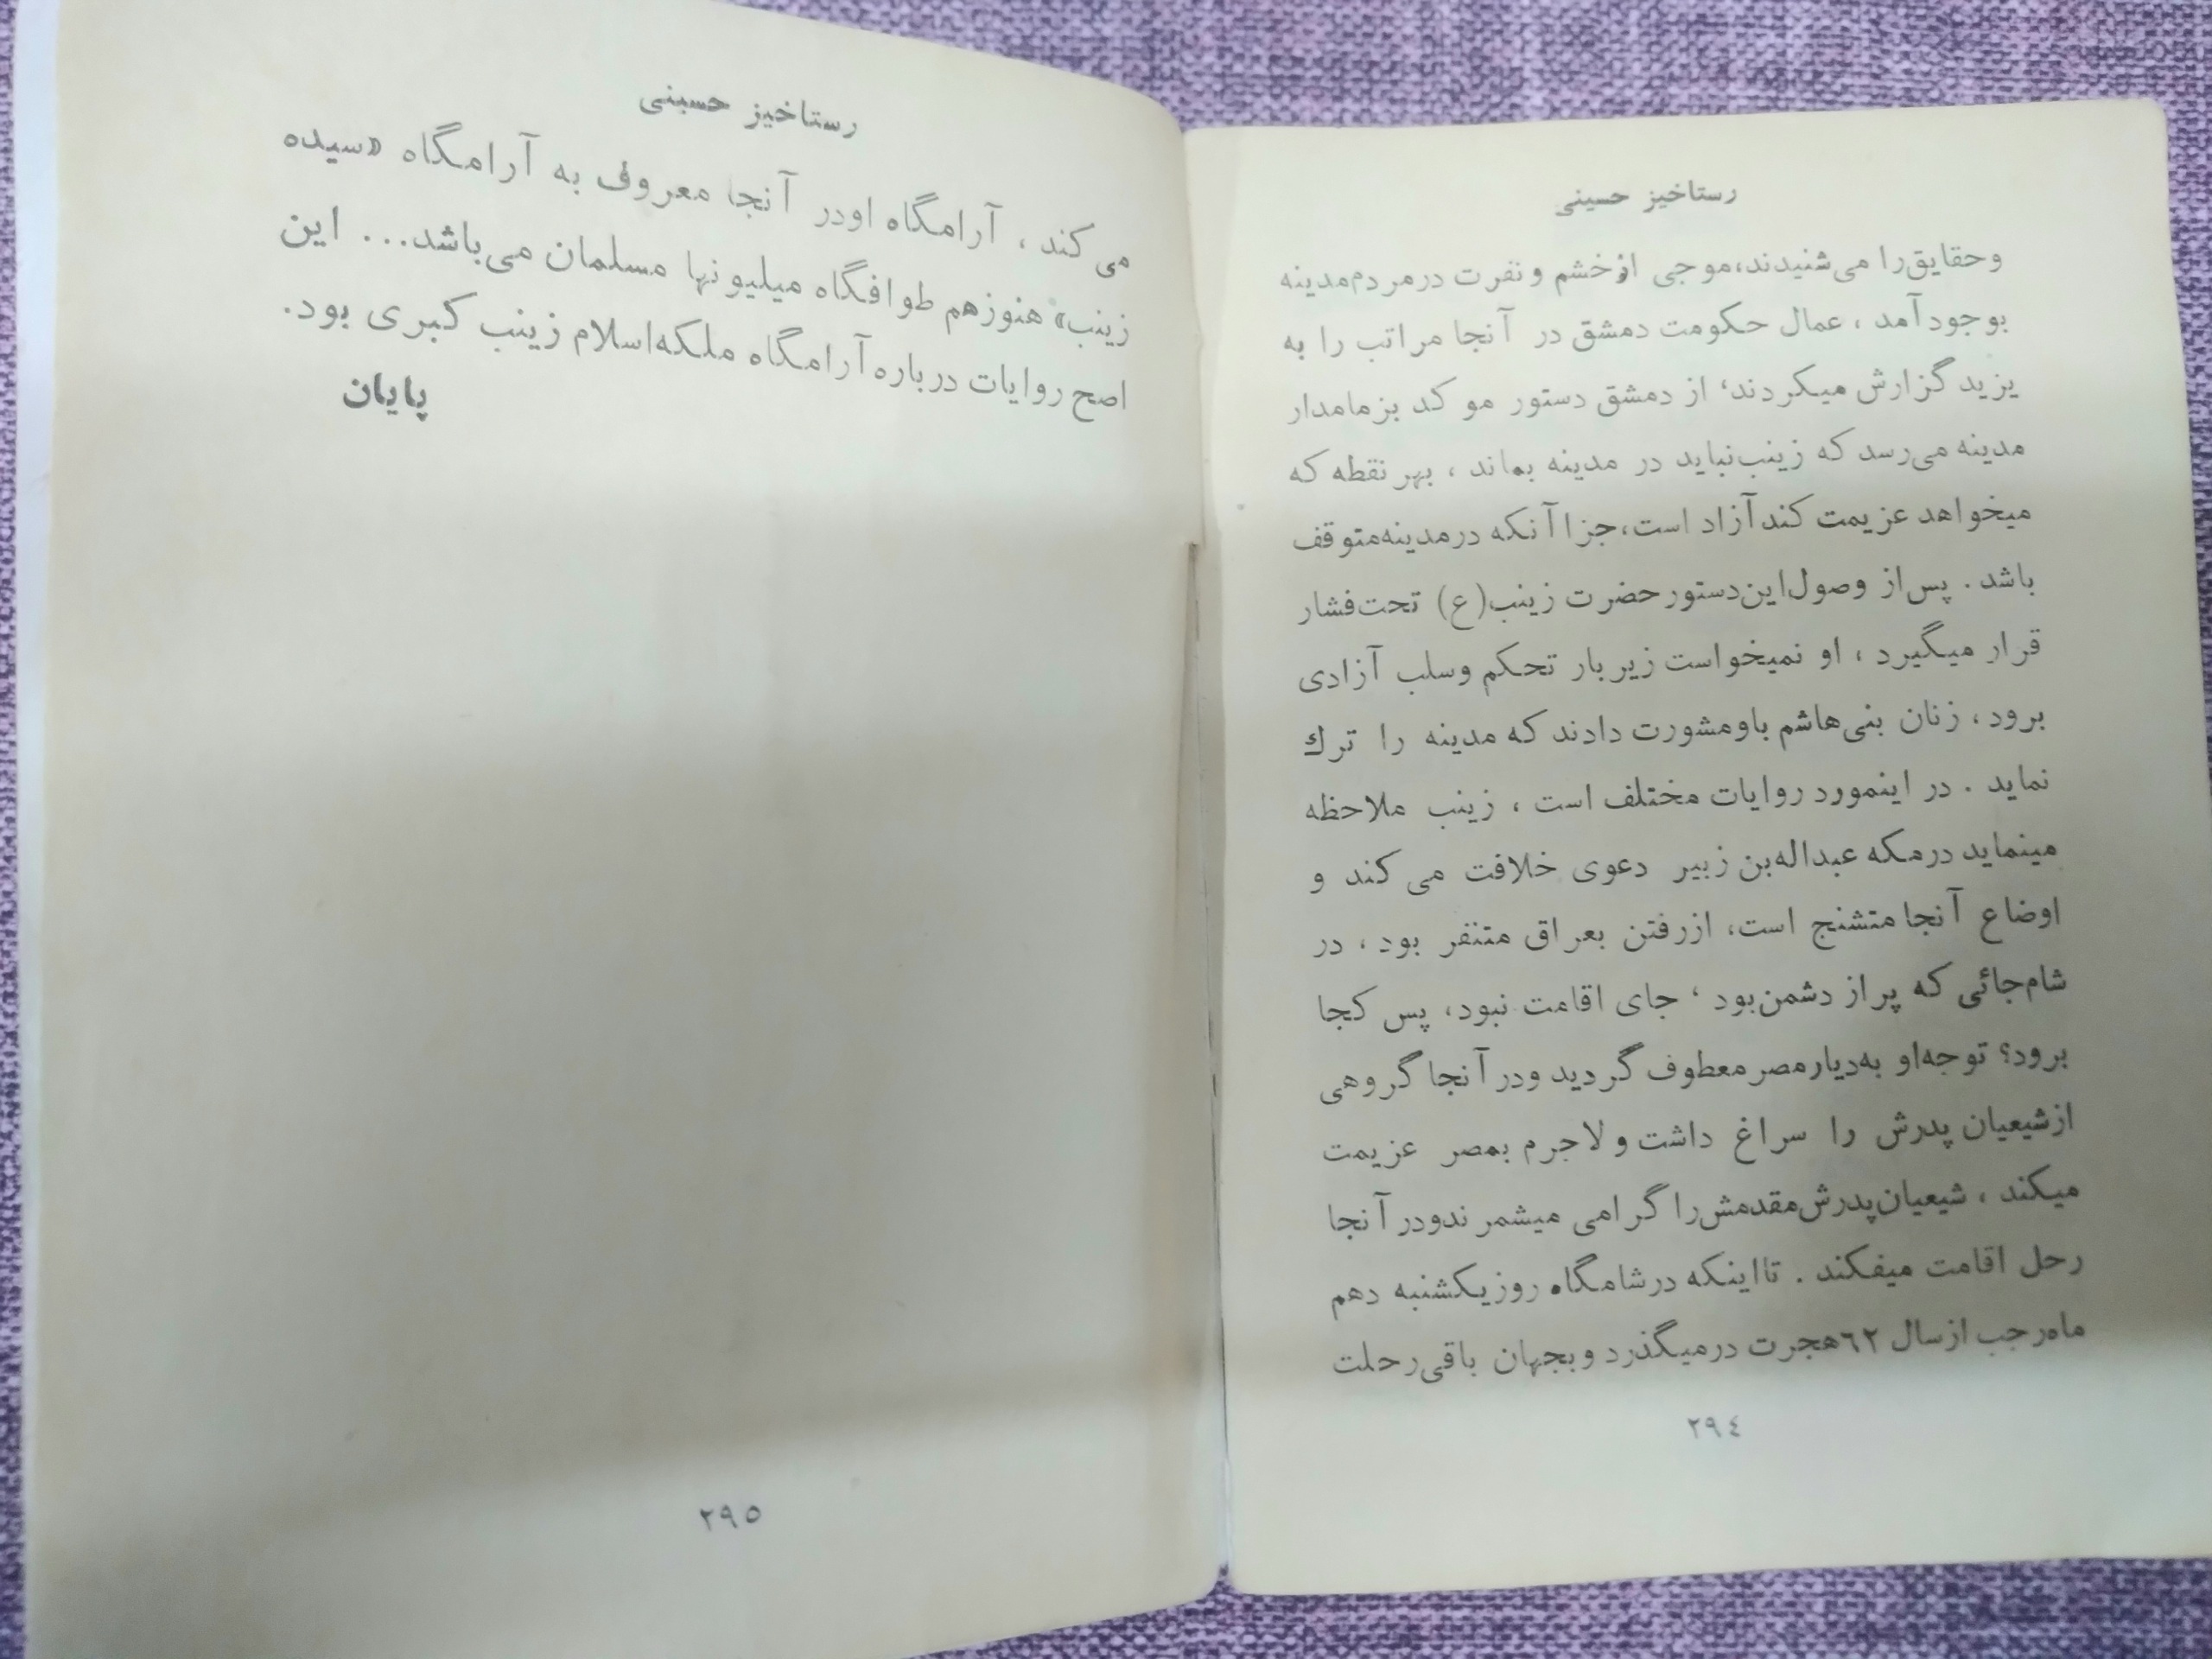 رستاخیز حسینی
وحقایق‌را می‌شنیدند،موجی ازخشم ونفرت درمردم‌مدینه
بوجودآمد ، عمال حکومت دمشق در آنجا مراتب را به
یزید گزارش میکردند، از دمشق دستور موکد بزمامدار
مدینه می‌رسد که زینب‌نباید در مدینه بماند ، بهر نقطه که
میخواهد عزیمت کندآزاد است،جزاآنکه درمدینه‌متوقف
باشد . پس‌از وصول‌این‌دستورحضرت زینب(ع) تحت‌فشار
قرار میگیرد ، او نمیخواست زیربار تحکم وسلب آزادی
برود ، زنان بنی‌هاشم باومشورت دادند که مدینه را ترك
نماید . در اینمورد روایات مختلف است ، زینب ملاحظه
مینماید درمکه عبداله‌بن زبیر دعوی خلافت می کند و
اوضاع آنجا متشنج است، ازرفتن بعراق متنفر بود ، در
شام‌جائی که پراز دشمن‌بود ، جای اقامت نبود، پس کجا
برود؟ توجه‌او به‌دیارمصرمعطوف گردید ودرآنجا گروهی
ازشیعیان پدرش را سراغ داشت و لاجرم بمصر عزیمت
میکند ، شیعیان‌پدرش‌مقدمش‌را گرامی میشمرندودرآنجا
رحل اقامت میفکند . تااینکه درشامگاه روزیکشنبه دهم
ماه‌رجب ازسال ٦٢هجرت درمیگذرد وبجهان باقی‌رحلت
٢٩٤
رستاخیز حسینی
می کند ، آرامگاه اودر آنجا معروف به آرامگاه «سیده
زینب» هنوزهم طوافگاه میلیونها مسلمان می‌باشد... این
اصح روایات درباره‌آرامگاه ملکه‌اسلام زینب کبری بود.
پایان
٢٩٥